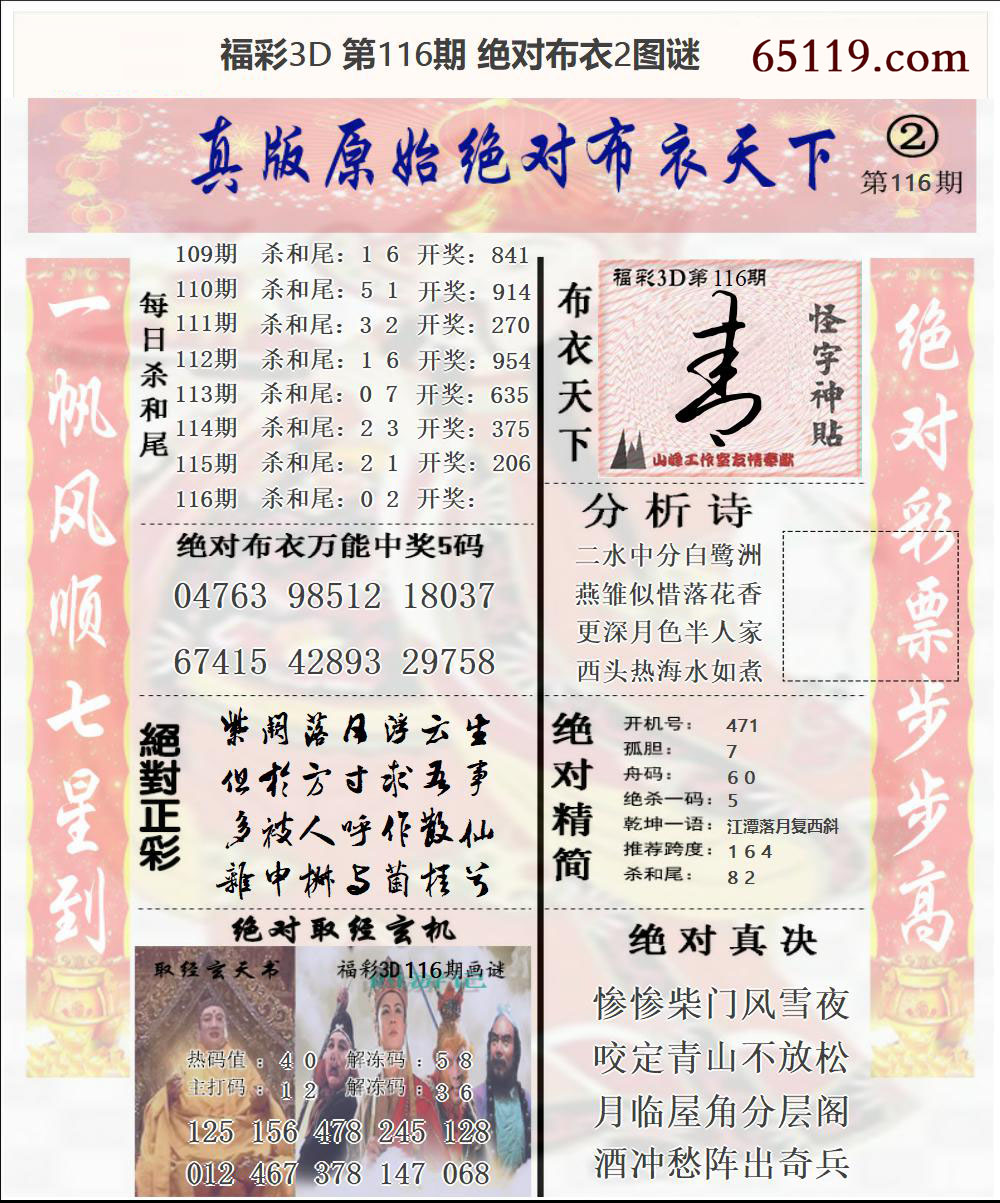 福彩3D 第116期 绝对布衣2图谜 65119.com
真版原始绝对布衣天下
②
第116期
一帆风顺七星到
每日杀和尾
109期 杀和尾：1 6 开奖：841
110期 杀和尾：5 1 开奖：914
111期 杀和尾：3 2 开奖：270
112期 杀和尾：1 6 开奖：954
113期 杀和尾：0 7 开奖：635
114期 杀和尾：2 3 开奖：375
115期 杀和尾：2 1 开奖：206
116期 杀和尾：0 2 开奖：
绝对布衣万能中奖5码
04763 98512 18037
67415 42893 29758
絕對正彩
紫阁落日浮云生
但於方寸求吾事
多被人呼作散仙
雜申椒与菌桂兮
绝对取经玄机
取经玄天书
福彩3D116期画谜
热码值：4 0 解冻码：5 8
主打码：1 2 解冻码：3 6
125 156 478 245 128
012 467 378 147 068
布衣天下
福彩3D第116期
怪字神貼
山峰工作室友情奉献
分析诗
二水中分白鹭洲
燕雏似惜落花香
更深月色半人家
西头热海水如煮
绝对精简
开机号：471
孤胆：7
舟码：6 0
绝杀一码：5
乾坤一语：江潭落月复西斜
推荐跨度：1 6 4
杀和尾：8 2
绝对真决
惨惨柴门风雪夜
咬定青山不放松
月临屋角分层阁
酒冲愁阵出奇兵
绝对彩票步步高